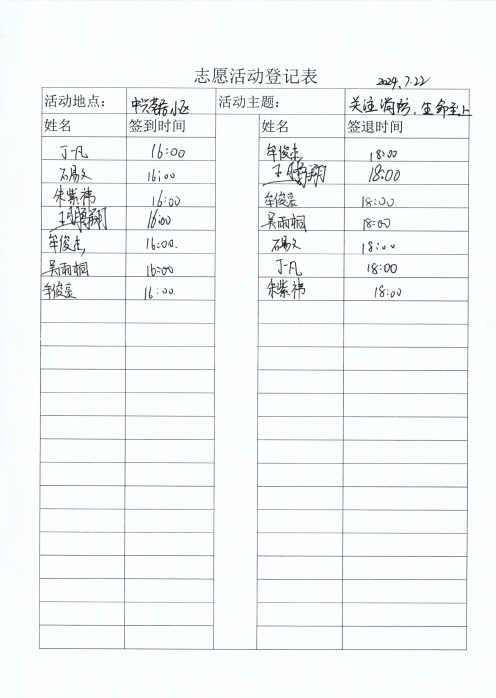 志愿活动登记表 2024.7.22
活动地点： 小区 活动主题： 关注消防，生命至上
姓名 签到时间 姓名 签退时间
丁一凡 16:00 牟俊杰 18:00
石易文 16:00 王鹏翔 18:00
朱紫祎 16:00 牟俊豪 18:00
王鹏翔 16:00 吴雨桐 18:00
牟俊杰 16:00. 石易文 18:00
吴雨桐 16:00 丁一凡 18:00
牟俊豪 16:00. 朱紫祎 18:00